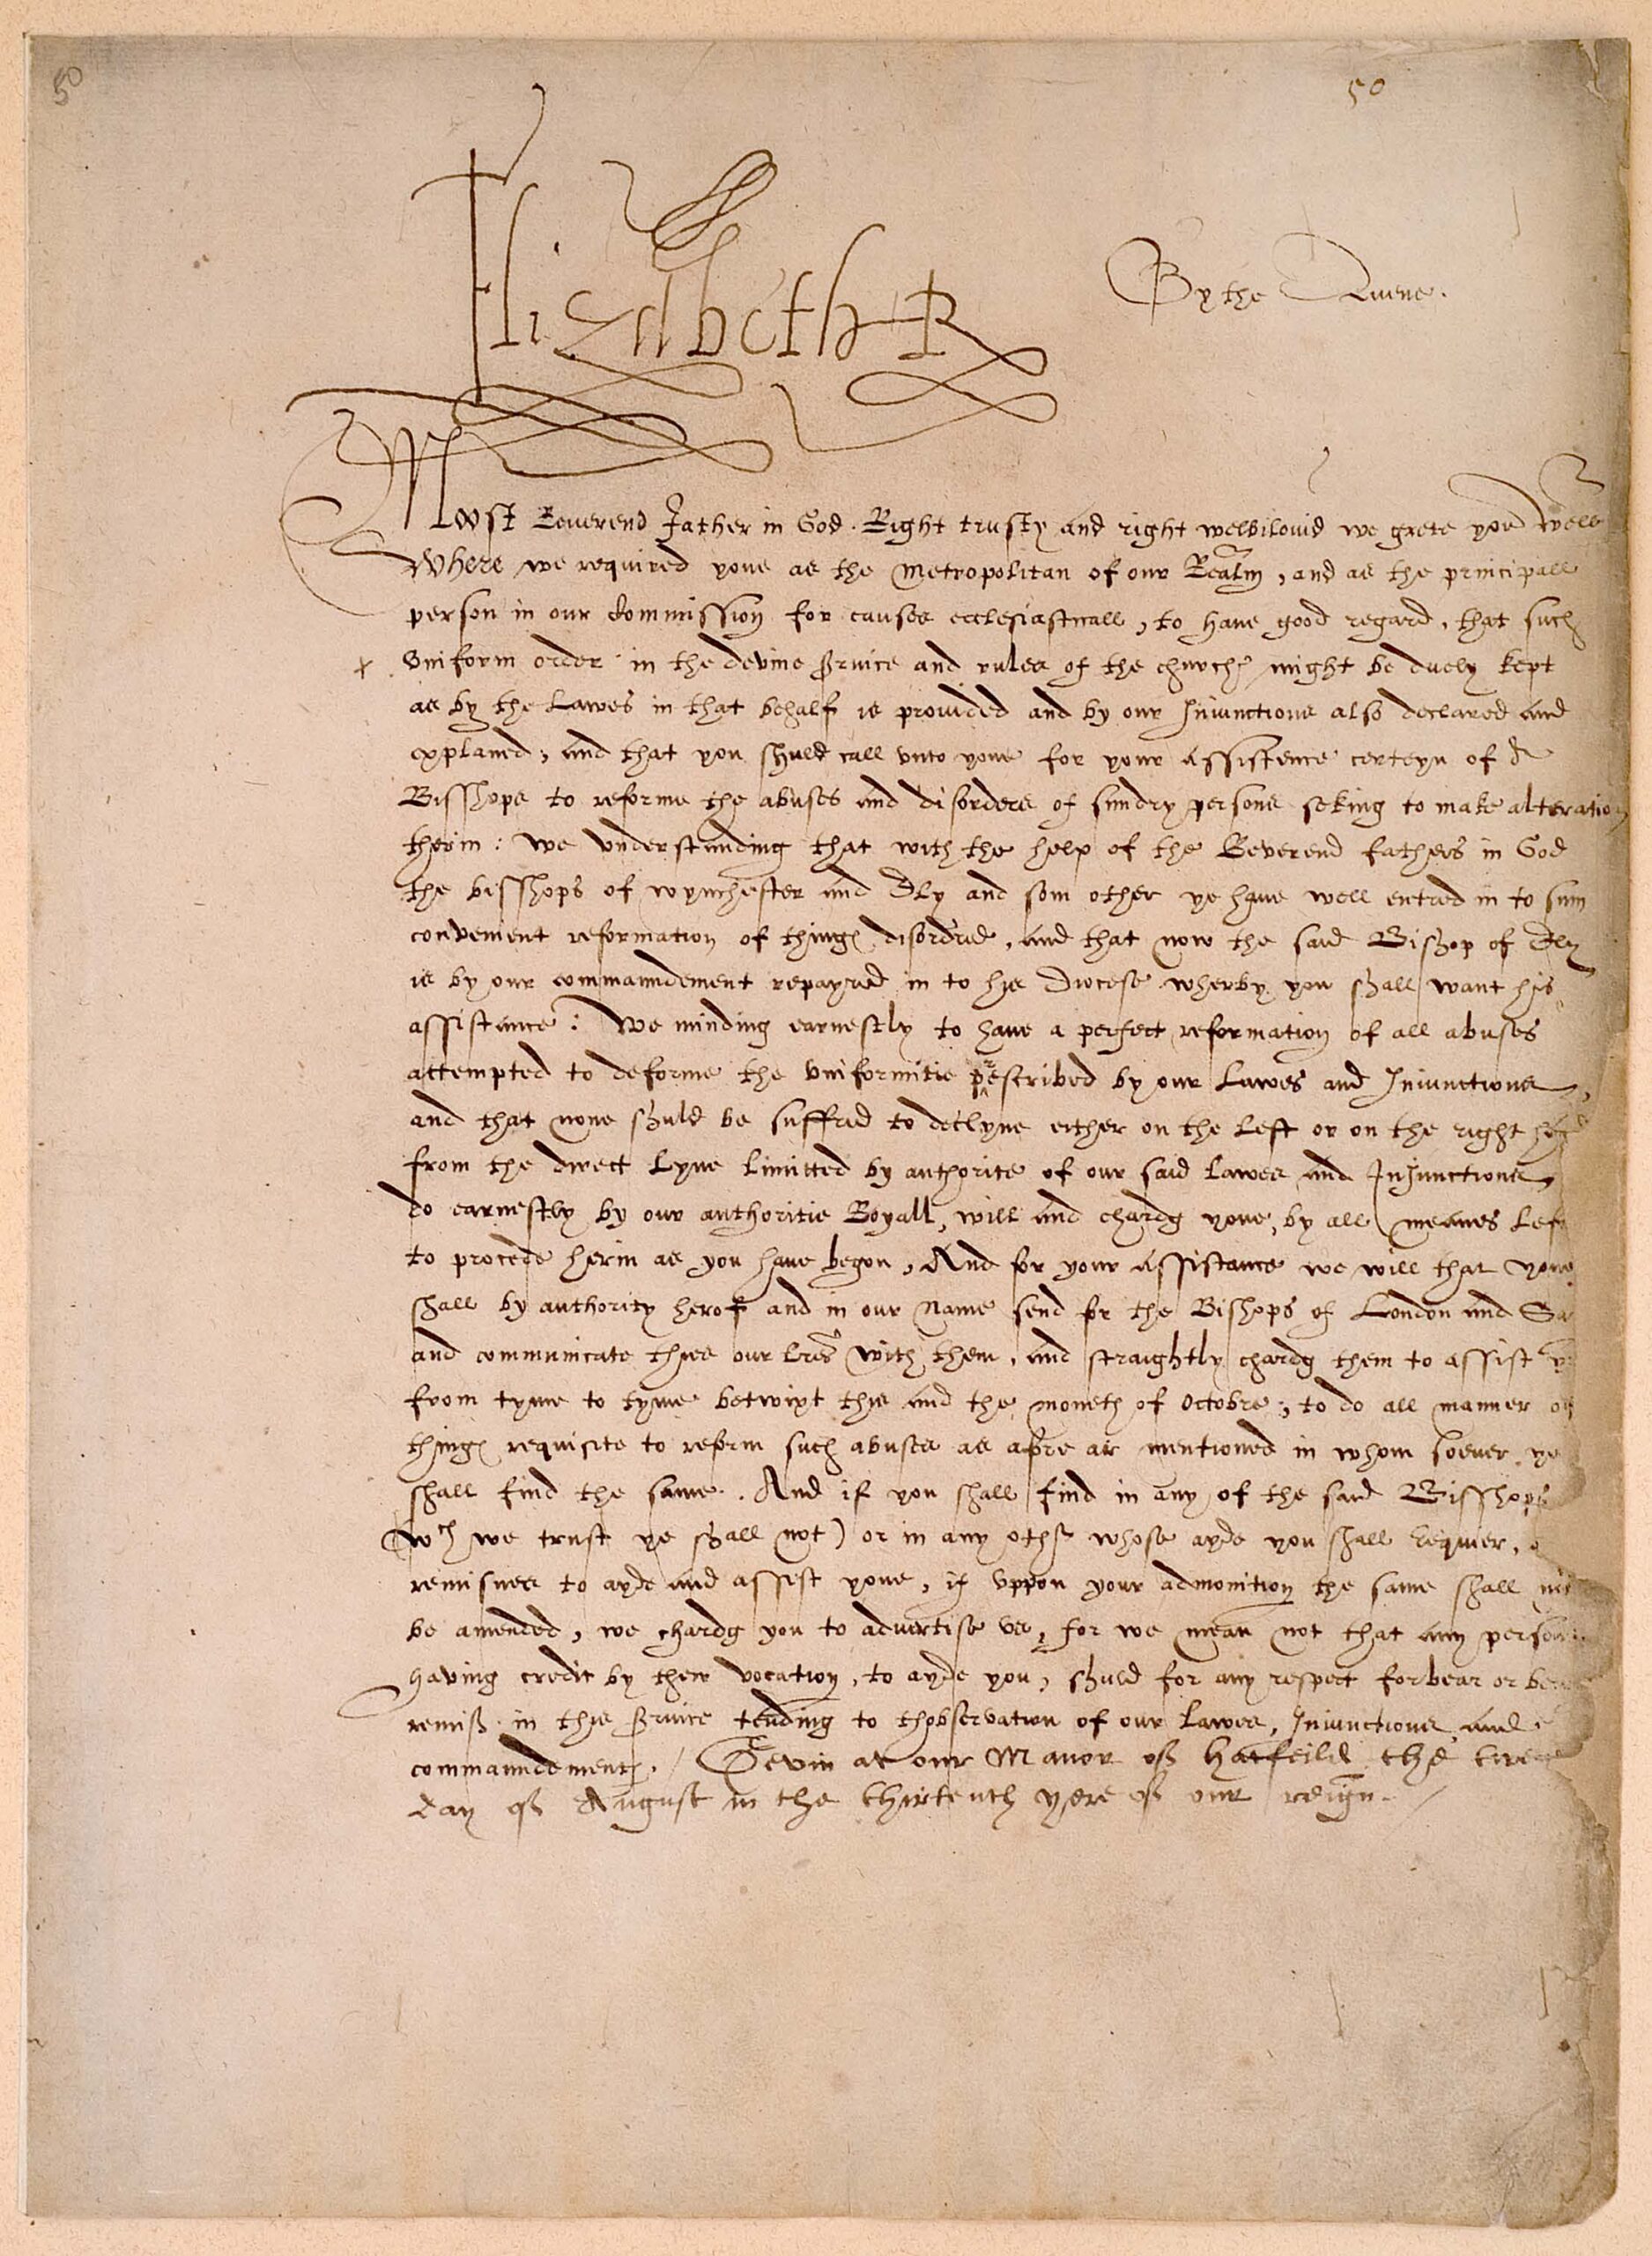 50
50
Elizabeth R
By the Quene.
Moost Reuerend Father in God. Right trusty and right welbilouid we grete you well
Where we required youe as the Metropolitan of our Realm, and as the principall
person in our Commission for causes ecclesiasticall, to have good regard, that such
x vniform order in the devine service and rules of the church might be duely kept
as by the Lawes in that behalf is provided and by our Iniunctions also declared and
explaned, and that you shuld call vnto youe for your assistence certeyn of
Bisshops to reforme the abuses and disorders of sundry persons seking to make alteration
therin: we vnderstanding that with the help of the Reverend fathers in God
the bisshops of wynchester and Ely and som other ye have well entred in to sum
convenient reformation of things disordred, and that now the said Bishop of Ely
is by our commaundement repayred in to his Diocese wherby you shall want his
assistance: We minding earnestly to have a perfect reformation of all abuses
attempted to deforme the vniformitie prescribed by our Lawes and Iniunctions,
and that none shuld be suffred to declyne either on the left or on the right
from the direct lyne limitted by authorite of our said lawes and Injunctions,
do earnestly by our authoritie Royall, will and chardg youe, by all meanes
to procede herin as you have begon, And for your assistance we will that youe
shall by authority herof and in our name send for the Bishops of London and
and communicate thies our lres with them, and straightly chardg them to assist
from tyme to tyme betwixt this and the moneth of octobre, to do all manner of
things requisite to reform such abuses as afore ar mentioned in whom soever ye
shall find the same. And if you shall find in any of the said Bisshops
(wch we trust ye shall not) or in any other whose ayde you shall requier,
remisnes to ayde and assist youe, if vppon your admonition the same shall
be amended, we chardg you to advertise vs, for we mean not that any person
having credit by their vocation, to ayde you, shuld for any respect forbear or
remiss in this service tending to thobservation of our lawes, Iniunctions and
commaundements. / Gevin at our Manor off Hatfeild the
day off August in the thirtenth yere off our reign.